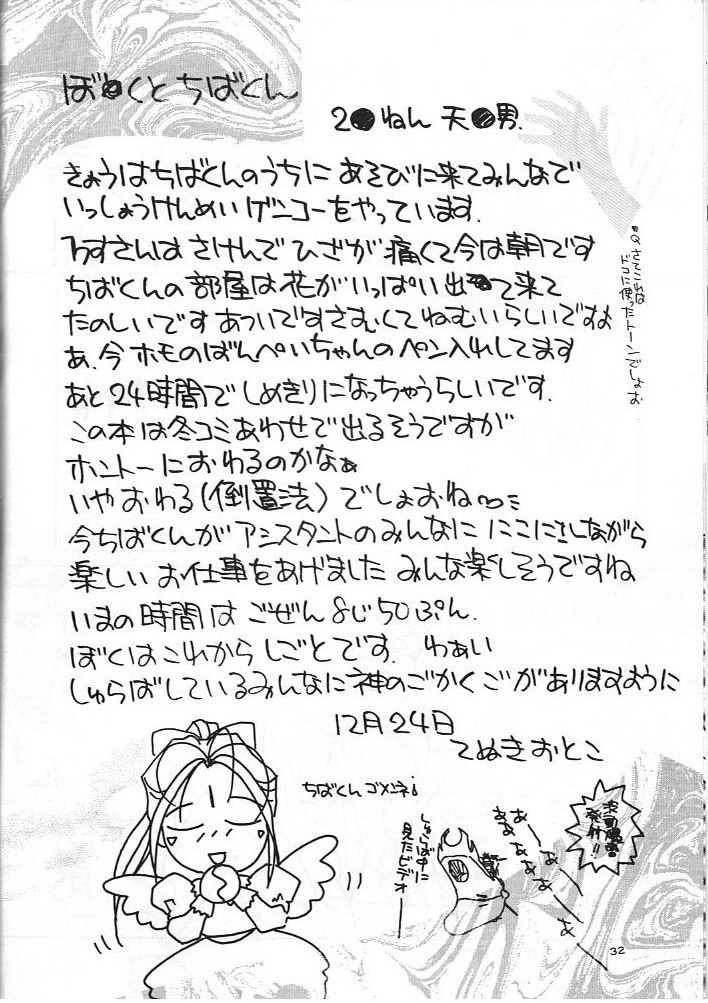 ぼ●くとちばくん
2●ねん 天●男.
きょうはちばくんのうちに あそびに来てみんなで
いっしょうけんめい ゲンコーをやっています.
さんは さけんで ひざが 痛くて今は朝です
ちばくんの 部屋は花がいっぱい出て来て
たのしいです あついですさむくてねむいらしいですよ
あ、今 ホモのばんぺいちゃんのペン入れしてます
あと24時間でしめきりになっちゃうらしいです.
この本は冬コミあわせで出るそうですが
ホントーにおわるのかなぁ
いやおわる(倒置法)でしょおね〜
今ちばくんがアシスタントのみんなに にこにこしながら
楽しいお仕事をあげました みんな楽しそうですね
いまの時間は ごぜん8じ50ぷん.
ぼくはこれからしごとです. わぁい
しゅらばしているみんなに神のごかくごがありますように
12月24日
てぬきおとこ
"Q.さてこれは
ドコに使ったトーンでしょお
ちばくんゴメンネ!
しゅらば中に
見たビデオ
あーーあぁ
発射!!
32